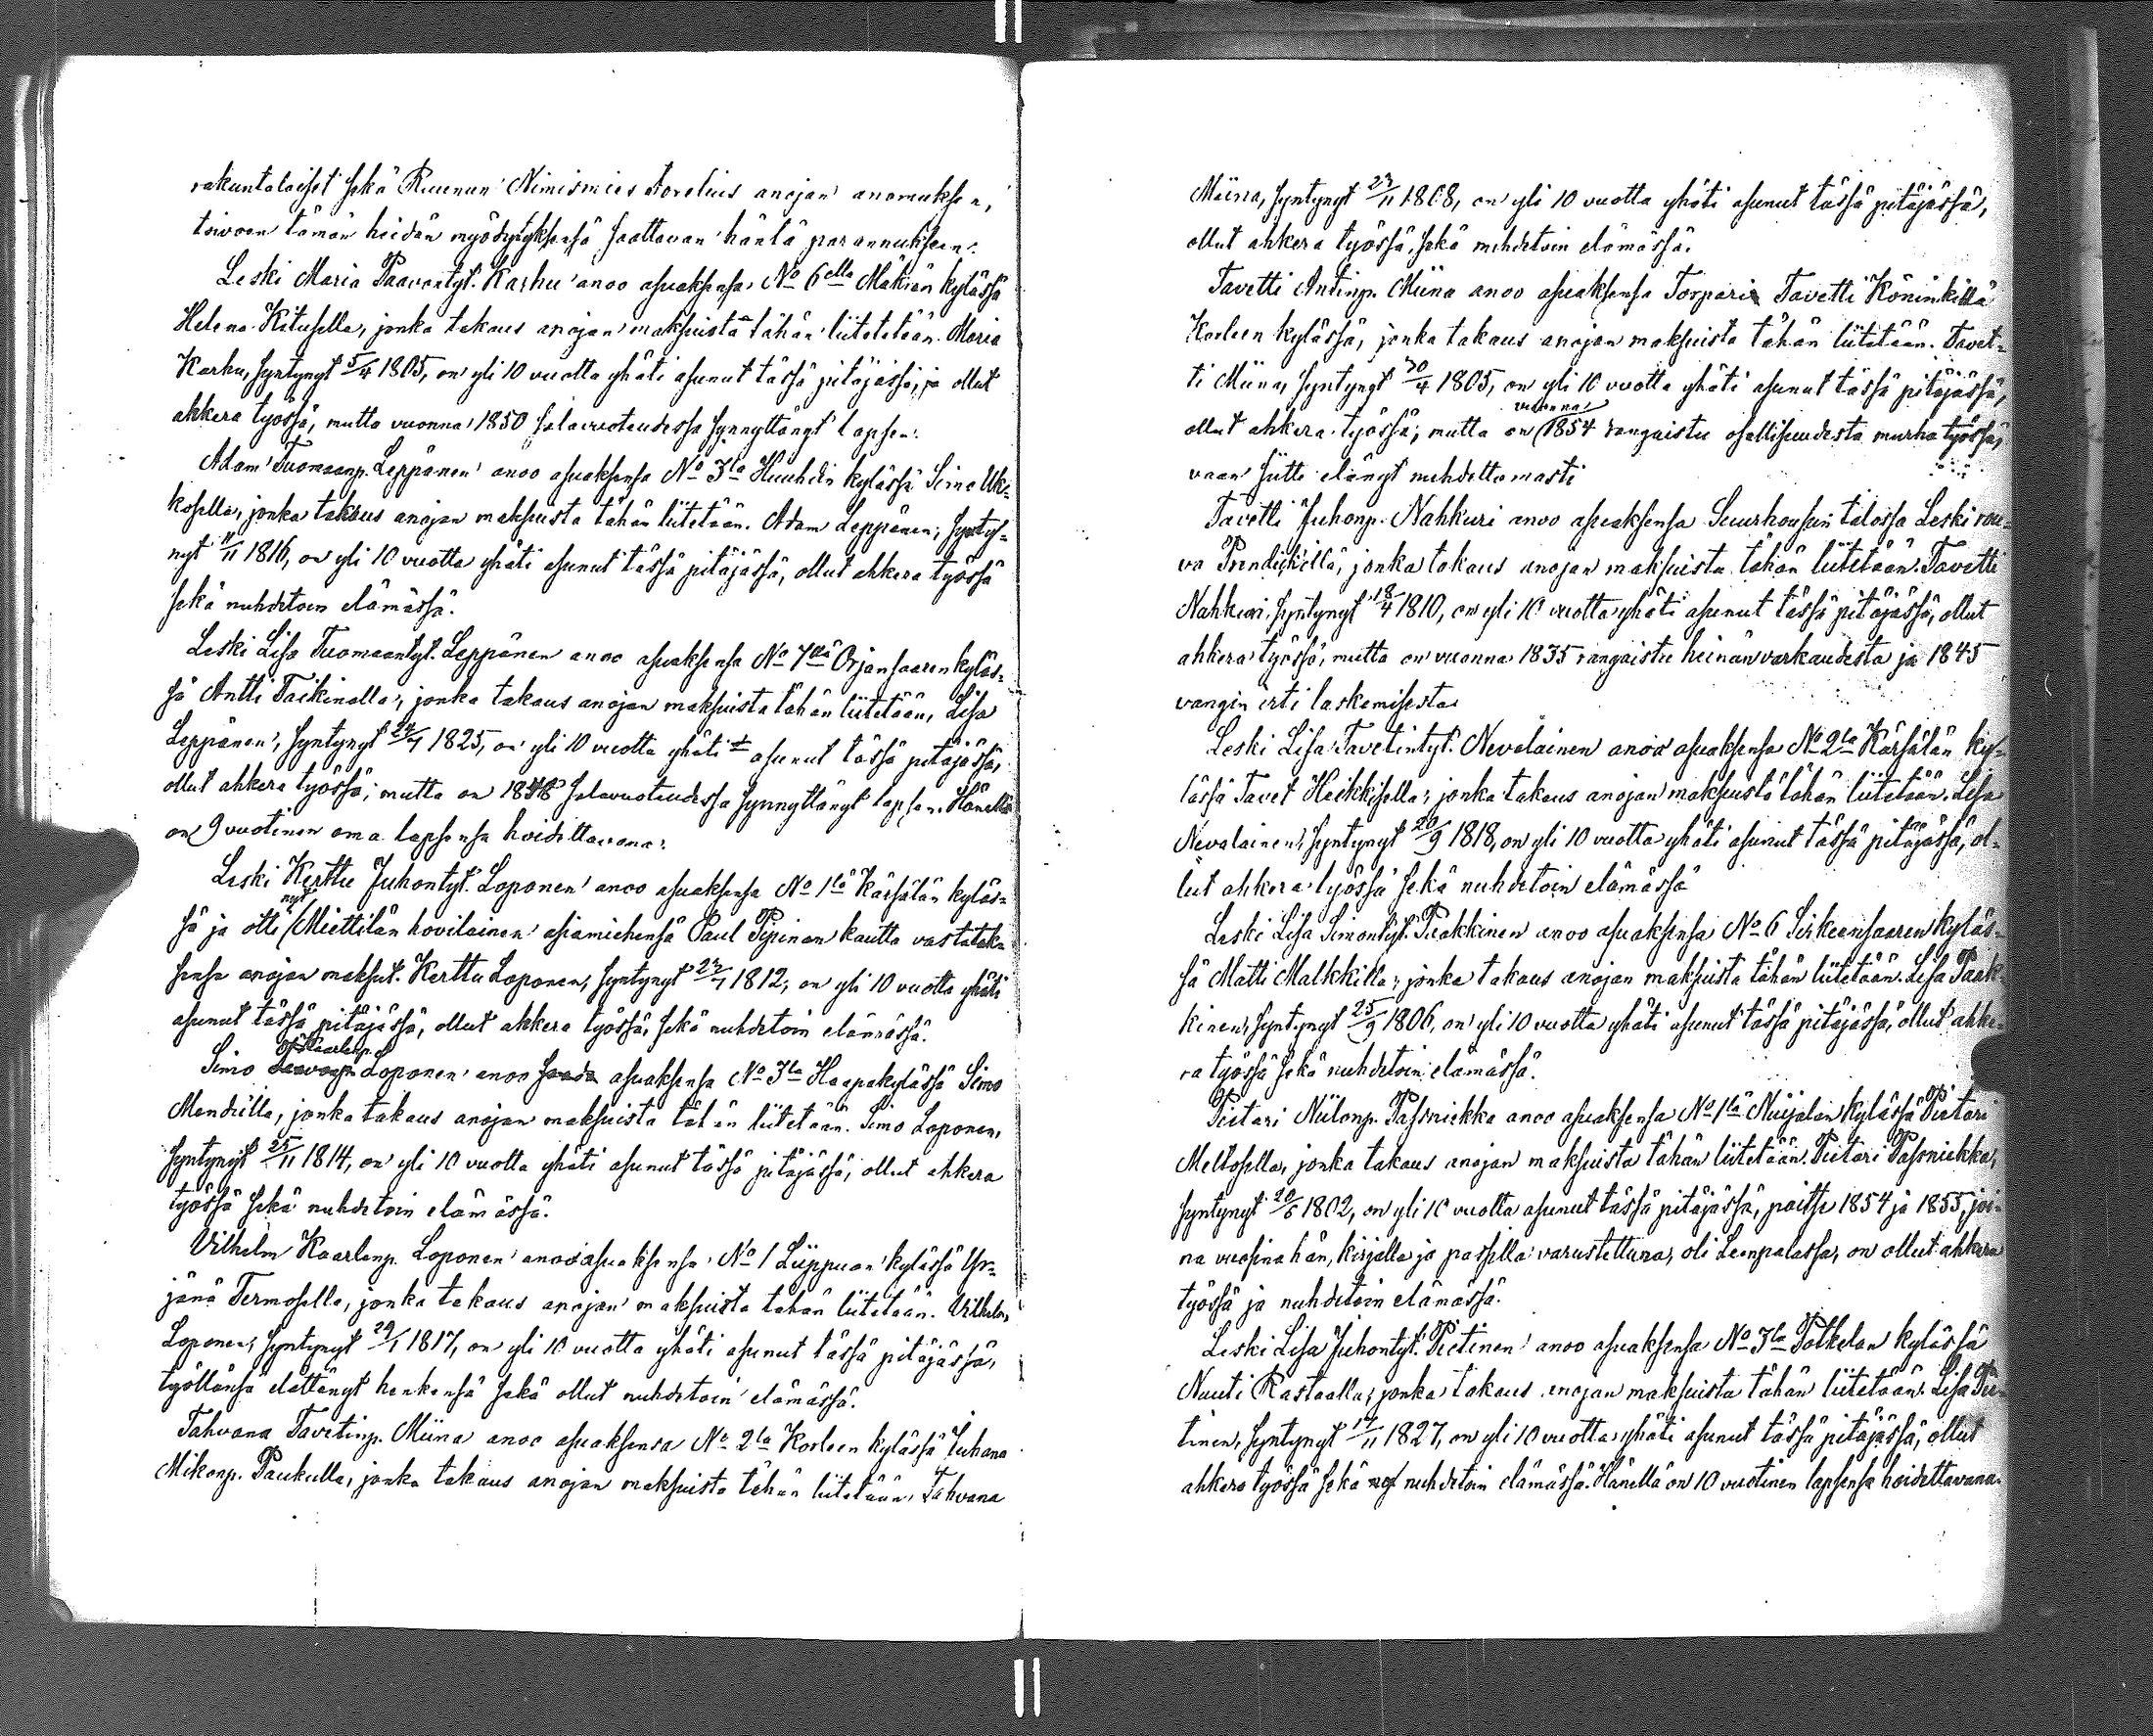 rakuntalaiset sekä Ruunun Nimismies Aorelius anojan anomuksen,
toivoen tämän heidän myödytyksensä saattavan häntä parannukseen.
Leski Maria Paavontyt. Karhu anoo asuaksensa No 6lla Mäkiän kylässä
Helena Kitusella, jonka takaus anojan maksuista tähän liitetetään. Maria
Karhu, syntynyt 5/4 1805, on yli 10 vuotta yhäti asunut tässä pitäjässä, ja ollut
ahkera työssä, mutta vuonna 1850 salavuoteudessa synnyttänyt lapsen.
Adam Tuomaanp. Leppänen anoo asuaksensa No 3la Huuhdin kylässä Simo Uk-
kosella, jonka takaus anojan maksuista tähän liitetään. Adam Leppänen, synty-
nyt 11/11 1816, on yli 10 vuotta yhäti asunut tässä pitäjässä, ollut ahkera työssä
sekä nuhdetoin elämässä.
Leski Lisa Tuomaantyt. Leppänen anoo asuaksensa No 7llä Orjansaaren kyläs-
sä Antti Taikinalla, jonka takaus anojan maksuista tähän liitetään, Lisa
Leppänen, syntynyt 24/7 1825, on yli 10 vuotta yhäti asunut tässä pitäjässä,
ollut ahkera työssä; mutta on 1848 salavuoteudessa synnyttänyt lapsen. Hänellä
on 9 vuotinen oma lapsensa hoidettavana.
Leski Kerttu Juhontyt. Loponen anoo asuaksensa No 1lä Kärsälän kyläs-
nyt
sä ja otti Miettilän hovilainen asiamiehensä Paul Pyrinen kautta vastatak-
sensa anojan maksut. Kerttu Loponen, syntynyt 23/7 1812, on yli 10 vuotta yhäti
asunut tässä pitäjässä, ollut ahkera työssä, sekä nuhdetoin elämässä.
Kaarlenp.
Simo Loponen anoo saada asuaksensa No 3la Haapakylässä Simo
Mendilla, jonka takaus anojan maksuista tähän liitetään. Simo Loponen,
syntynyt 25/11 1814, on yli 10 vuotta yhäti asunut tässä pitäjässä, ollut ahkera
työssä sekä nuhdetoin elämässä.
Vilhelm Kaarlenp. Loponen anoo asuaksensa No 1 Liippuan kylässä Yr-
jänä Termosella, jonka takaus anojan maksuista tähän liitetään. Vilhelm
Loponen, syntynyt 29/1 1817, on yli 10 vuotta yhäti asunut tässä pitäjässä,
työllänsä elättänyt henkensä sekä ollut nuhdetoin elämässä.
Tahvana Tavetinp. Miina anoo asuaksensa No 2la Korleen kylässä Juhana
Mikonp. Paukulla, jonka takaus anojan maksuista tähän liitetään, Tahvana
Miina, syntynyt 23/11 1808, on yli 10 vuotta yhäti asunut tässä pitäjässä,
ollut ahkera työssä, sekä nuhdetoin elämässä.
Tavetti Antinp. Miina anoo asuaksensa Torpari Tavetti Köninkillä
Korleen kylässä, jonka takaus anojan maksuista tähän liitetään. Tavet-
ti Miina, syntynyt 30/4 1805, on yli 10 vuotta yhäti asunut tässä pitäjässä,
vuonna
ollut ahkera työssä; mutta on 1854 rangaistu osallisuudesta murha työssä,
vaan siitte elänyt nuhdettomasti
Tavetti Juhonp. Nahkuri anoo asuaksensa Suurhousun talossa Leski rou-
va Prendickillä, jonka takaus anojan maksuista tähän liitetään. Tavetti
Nahkuri, syntynyt 18/4 1810, on yli 10 vuotta yhäti asunut tässä pitäjässä, ollut
ahkera työssä, mutta on vuonna 1835 rangaistu heinän varkaudesta ja 1845
vangin irti laskemisesta.
Leski Lisa Tavetintyt. Nevalainen anoo asuaksensa No 2la Kärsälän ky-
lässä Tavet Heikkisella, jonka takaus anojan maksuista tähän liitetään. Lisa
Nevalainen, syntynyt 20/9 1818, on yli 10 vuotta yhäti asunut tässä pitäjässä, ol-
lut ahkera työssä sekä nuhdetoin elämässä
Leski Lisa Simontyt. Paakkinen anoo asuaksensa No 6 Sirkeensaaren kyläs-
sä Matti Malkkilla, jonka takaus anojan maksuista tähän liitetään. Lisa Paak-
kinen, syntynyt 25/9 1806, on yli 10 vuotta yhäti asunut tässä pitäjässä, ollut ahke-
ra työssä sekä nuhdetoin elämässä.
Pietari Niilonp. Pasoniekka anoo asuaksensa No 1lä Muijalan kylässä Pietari
Meltosella, jonka takaus anojan maksuista tähän liitetään. Pietari Pasoniekka,
syntynyt 20/5 1802, on yli 10 vuotta asunut tässä pitäjässä, paitse 1854 ja 1855, joi-
na vuosina hän, kirjalla ja passilla varustettuna, oli Leenpalassa, on ollut ahkera
työssä ja nuhdetoin elämässä.
Leski Lisa Juhontyt. Pietinen anoo asuaksensa No 3la Potkelan kylässä
Nuuti Rastaalla, jonka takaus anojan maksuista tähän liitetään. Lisa Pie-
tinen, syntynyt 17/11 1827, on yli 10 vuotta yhäti asunut tässä pitäjässä, ollut
ahkera työssä sekä nuhdetoin elämässä. Hänellä on 10 vuotinen lapsensa hoidettavana.